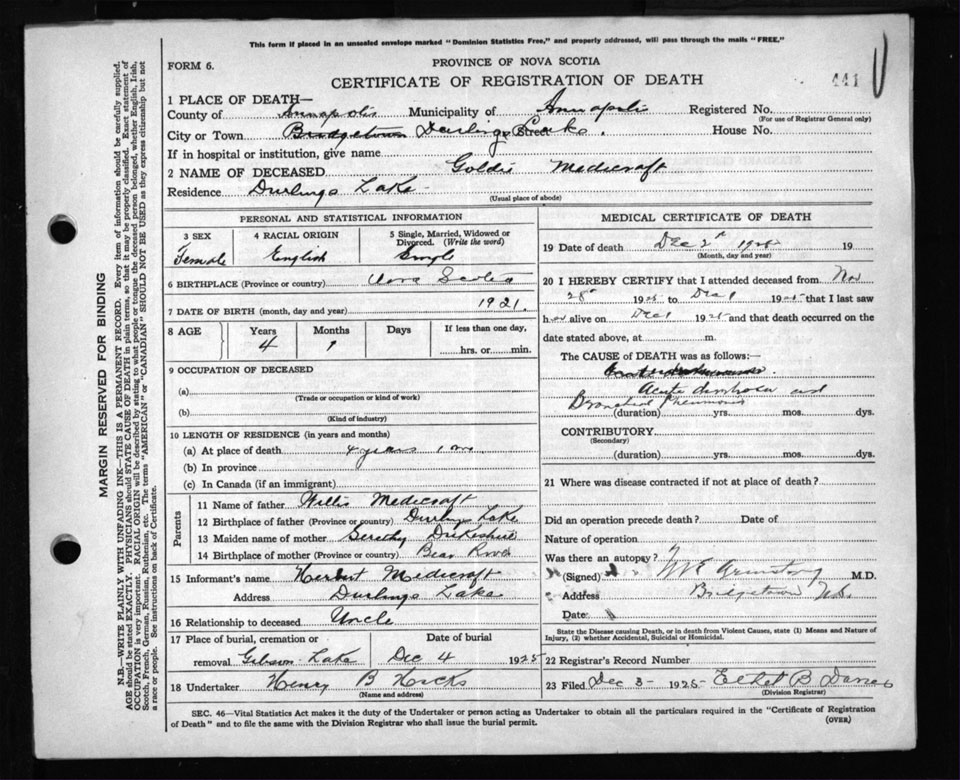 This form if placed in an unsealed envelope marked "Dominion Statistics Free," and properly addressed, will pass through the mails "FREE."
FORM 6.
PROVINCE OF NOVA SCOTIA
CERTIFICATE OF REGISTRATION OF DEATH
441
1 PLACE OF DEATH—
County of Annapolis Municipality of Annapolis Registered No.
(For use of Registrar General only)
City or Town Bridgetown Durlings Lake. Street House No.
If in hospital or institution, give name
2 NAME OF DECEASED Goldie Medicraft
Residence Durlings Lake
(Usual place of abode)
PERSONAL AND STATISTICAL INFORMATION
3 SEX
Female
4 RACIAL ORIGIN
English
5 Single, Married, Widowed or Divorced. (Write the word)
Single
6 BIRTHPLACE (Province or country) Nova Scotia
7 DATE OF BIRTH (month, day and year) 1921
8 AGE Years Months Days If less than one day,
4 1 hrs. or min.
9 OCCUPATION OF DECEASED
(a)
(Trade or occupation or kind of work)
(b)
(Kind of industry)
10 LENGTH OF RESIDENCE (in years and months)
(a) At place of death 4 years 1 mo
(b) In province
(c) In Canada (if an immigrant)
Parents
11 Name of father Willis Medicraft
12 Birthplace of father (Province or country) Durlings Lake
13 Maiden name of mother
14 Birthplace of mother (Province or country) Bear River
15 Informant's name Herbert Medicraft
Address Durlings Lake
16 Relationship to deceased Uncle
17 Place of burial, cremation or removal Gibson Lake
Date of burial
Dec 4 1925
18 Undertaker Henry B Hicks
(Name and address)
MEDICAL CERTIFICATE OF DEATH
19 Date of death Dec 2 1925 19
(Month, day and year)
20 I HEREBY CERTIFY that I attended deceased from Nov
28 1925 to Dec 1 1925 that I last saw
h alive on Dec 1 1925 and that death occurred on the
date stated above, at m.
The CAUSE of DEATH was as follows:—
Acute and
Bronchial Pneumonia
(duration) yrs. mos. dys.
CONTRIBUTORY
(Secondary)
(duration) yrs. mos. dys.
21 Where was disease contracted if not at place of death?
Did an operation precede death? Date of
Nature of operation
Was there an autopsy?
(Signed) Armstrong M.D.
Address Bridgetown N.S.
Date
State the Disease causing Death, or in death from Violent Causes, state (1) Means and Nature of Injury, (2) whether Accidental, Suicidal or Homicidal.
22 Registrar's Record Number
23 Filed Dec 3 1925 Ethel B
(Division Registrar)
SEC. 46—Vital Statistics Act makes it the duty of the Undertaker or person acting as Undertaker to obtain all the particulars required in the "Certificate of Registration
of Death" and to file the same with the Division Registrar who shall issue the burial permit.
(OVER)
MARGIN RESERVED FOR BINDING
N.B.—WRITE PLAINLY WITH UNFADING INK—THIS IS A PERMANENT RECORD. Every item of information should be carefully supplied.
AGE should be stated EXACTLY. PHYSICIANS should STATE CAUSE OF DEATH in plain terms, so that it may be properly classified. Exact statement of
OCCUPATION is very important. RACIAL ORIGIN will be described by stating to what people or tongue the deceased person belonged, whether English, Irish,
Scotch, French, German, Russian, Ruthenian, etc. The terms "AMERICAN" or "CANADIAN" SHOULD NOT BE USED as they express citizenship but not
a race or people. See instructions on back of Certificate.